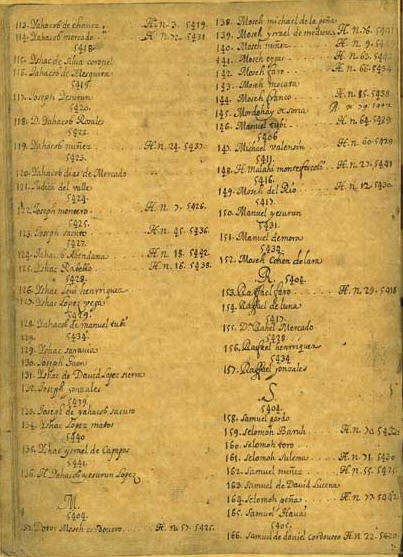 113. Yahacob de chaves H. n. 3. 5419.
114. Yahacob mercado H. n. 72. 5431.
5418.
115. Yshac de Silva coronel
116. Yahacob de Mesquita
5419.
117. Joseph Jesurun
5420.
118. D. Yahacob Rosales
5422.
119. Yahacob nuñez H. n. 24. 5437.
5423.
120. Yahacob dias de Mercado
121. Judica del valle
5424.
122. Joseph montero H. n. 7. 5426.
5425.
123. Joseph sacuto H. n. 45. 5436.
5427.
124. Yahacob Abendana H. n. 18. 5442.
125. Yshac Rabello H. n. 16. 5438.
5428.
126. Yshac levi henrriquez
127. Yshac Lopez
5429.
128. Yahacob de manuel
129. 5434.
129. Yshac
130. Joseph
131. Yshac de David Lopez
132. Joseph gonzales
5439.
133. Joseph de yahacob sacuto
134. Yshac Lopez matos
5440
135. Yshac yrrael de
5441.
136. H. Yahacob yesurun Lopez
M.
5404.
137. Mosch cordovero H. n. 57. 5425.
138. Mosch michael de la peña
139. Mosch yrrael de H. n. 76.
140. Mosch nuñez H. n. 9.
141. Mosch H. n. 63.
142. Mosch faro H. n. 62. 5434
143. Mosch mocata
144. Mosch franco H. n. 85. 5438
145. Mordohay de soria
146. Manuel tubi H. n. 64. 5429
5406
147. Michael valensin H. n. 60. 5429
5411.
148. H. Malahi montefoscoli H. n. 27. 5441
5416.
149. Mosch del Rio H. n. 12. 5430
5417.
150. Manuel yesurun
5431.
151. Manuel de mora
5434.
152. Mosch Cohen de lara
R. 5404.
153. Raffael faro H. n. 29. 5418
154. Raffael de luna
5417
155. Dª Rahel Mercado
5428
156. Raffael henrriquez
5434
157. Raffael gonzales
S.
5404.
158. Samuel gordo
159. Selomoh Baruh H. n. 30.
160. Selomoh toro
161. Selomoh H. n. 71. 5430
162. Samuel nuñez H. n. 55. 5425
163. Samuel de David Lucena
164. Selomoh H. n. 77. 5442
165. Samuel
5405.
166. Samuel de daniel cordovero H. n. 22. 5420